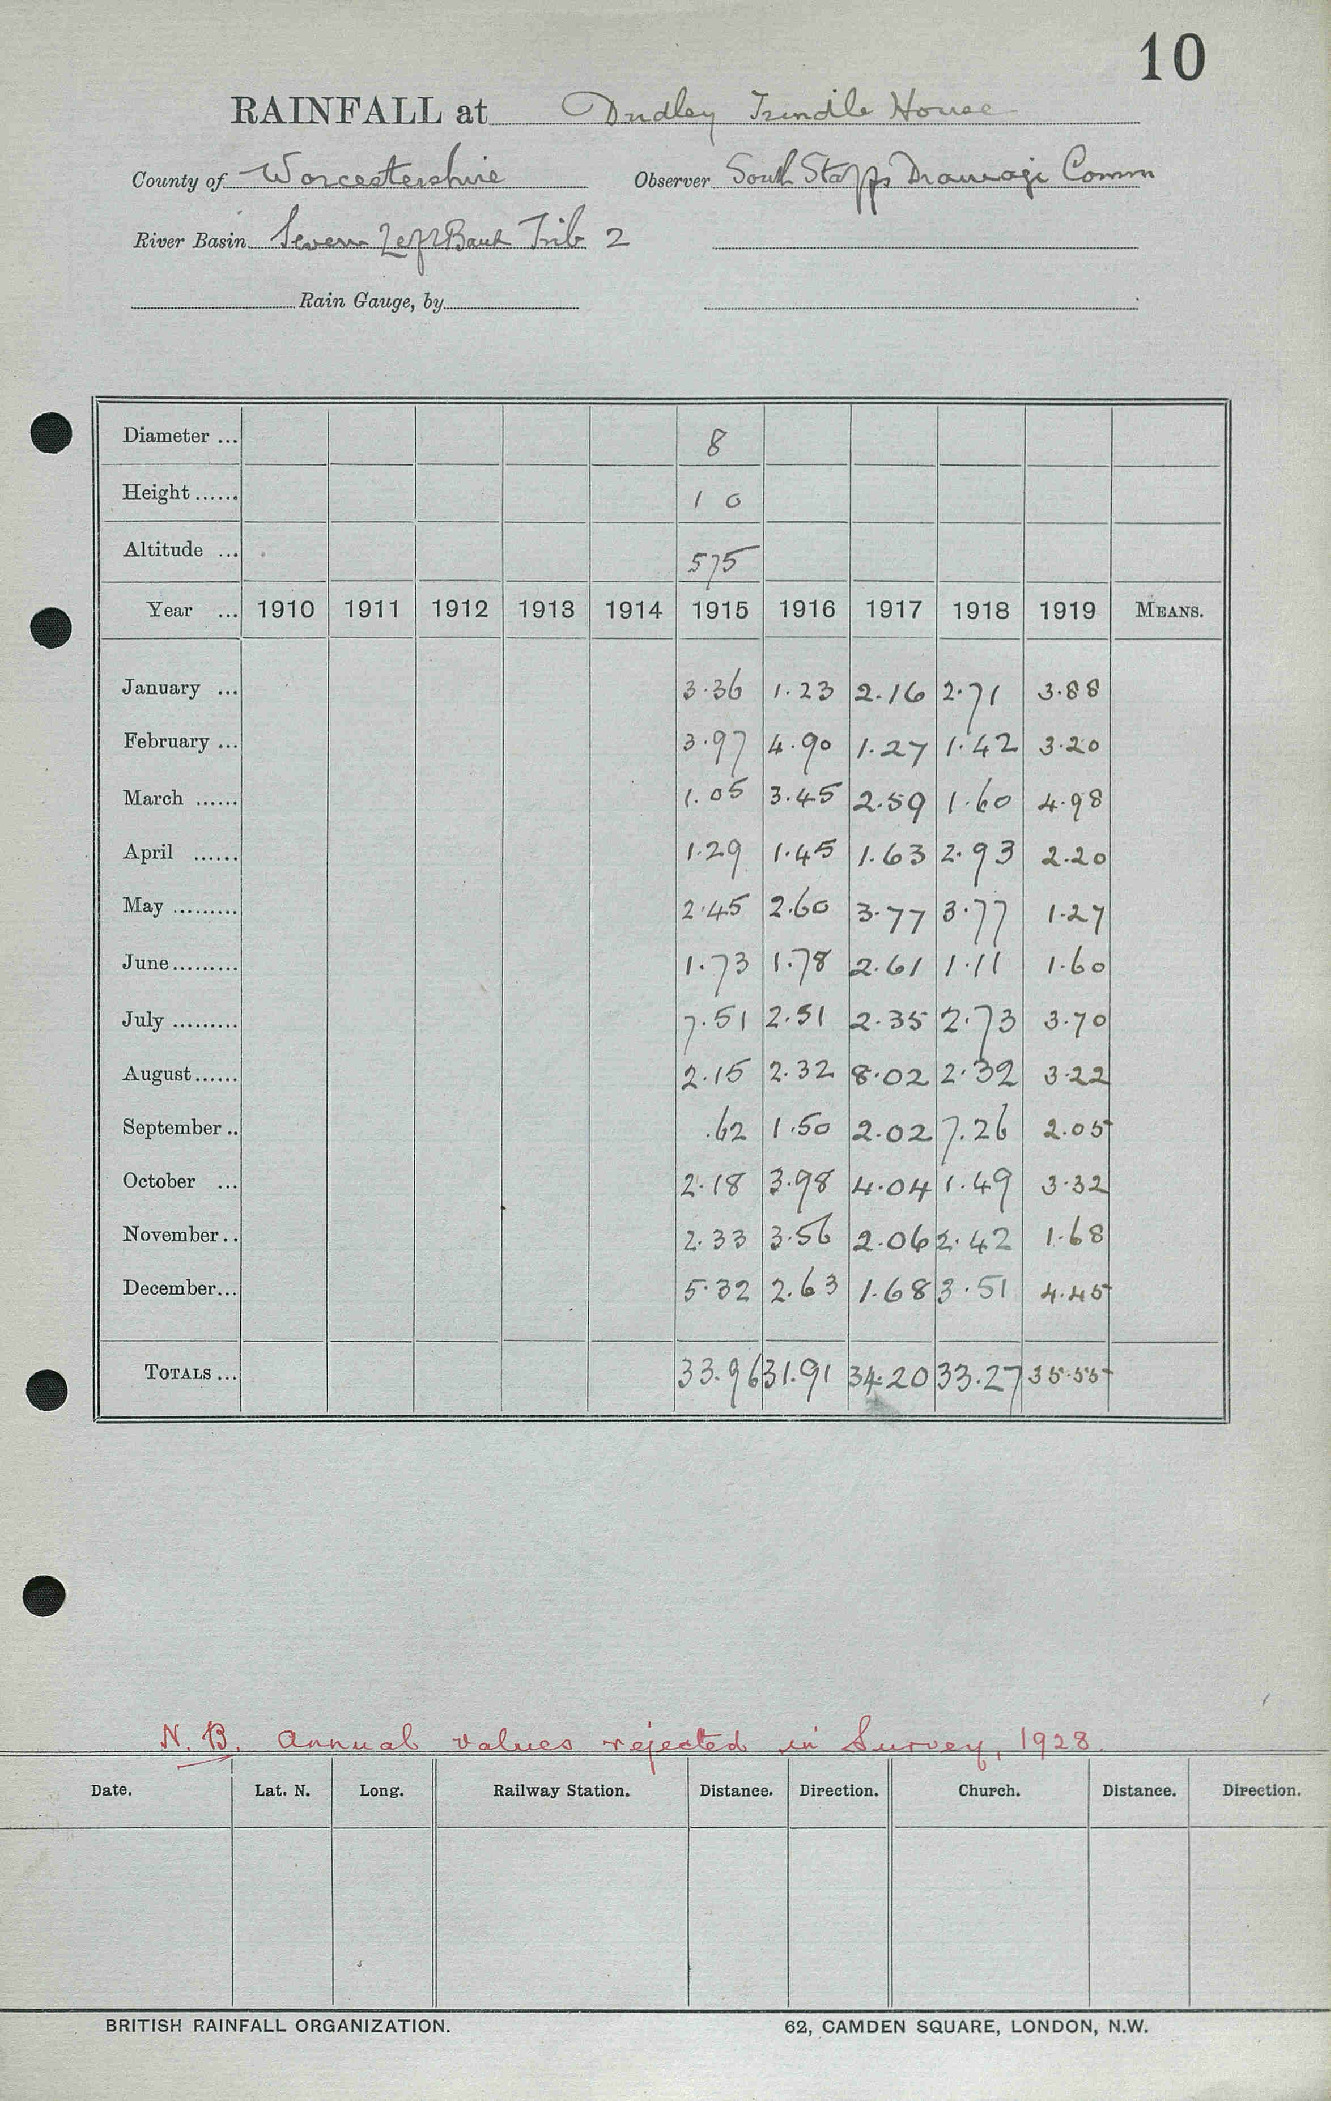 10
RAINFALL at Dudley Trindle House
County of Worcestershire Observer South Staffs Drainage Comm
River Basin Severn Left Bank Trib 2
Rain Gauge, by
Diameter ... 8
Height ...... 1 0
Altitude ... 575
Year ... 1910 1911 1912 1913 1914 1915 1916 1917 1918 1919 MEANS.
January ... 3.36 1.23 2.16 2.71 3.88
February ... 3.97 4.90 1.27 1.42 3.20
March ...... 1.05 3.45 2.59 1.60 4.98
April ...... 1.29 1.45 1.63 2.93 2.20
May ......... 2.45 2.60 3.77 3.77 1.27
June......... 1.73 1.78 2.61 1.11 1.60
July ......... 7.51 2.51 2.35 2.73 3.70
August...... 2.15 2.32 8.02 2.32 3.22
September .. .62 1.50 2.02 7.26 2.05
October ... 2.18 3.98 4.04 1.49 3.32
November .. 2.33 3.56 2.06 2.42 1.68
December... 5.32 2.63 1.68 3.51 4.45
TOTALS ... 33.96 31.91 34.20 33.27 35.55
N.B. Annual values rejected in Survey, 1928.
Date. Lat. N. Long. Railway Station. Distance. Direction. Church. Distance. Direction.
BRITISH RAINFALL ORGANIZATION. 62, CAMDEN SQUARE, LONDON, N.W.